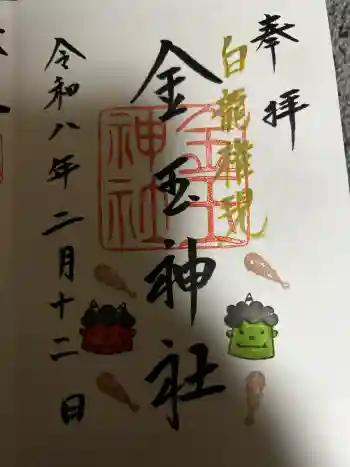 奉拝
白龍権現
金玉神社
金玉神社
令和八年二月十二日